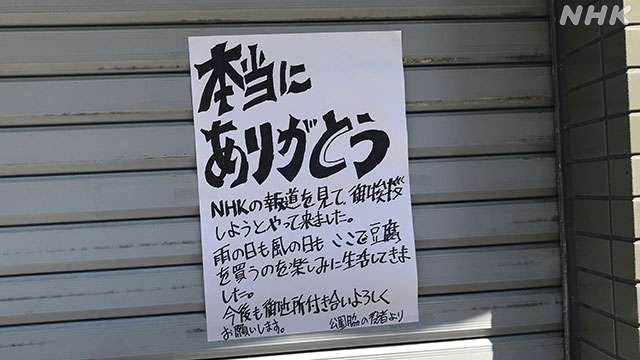 NHK
本当に
ありがとう
NHKの報道を見て、御挨拶
しようとやって来ました。
雨の日も風の日も ここで豆腐
を買うのを楽しみに生活してきま
した。
今後も御近所付き合いよろしく
お願いします。 公園脇の役者より